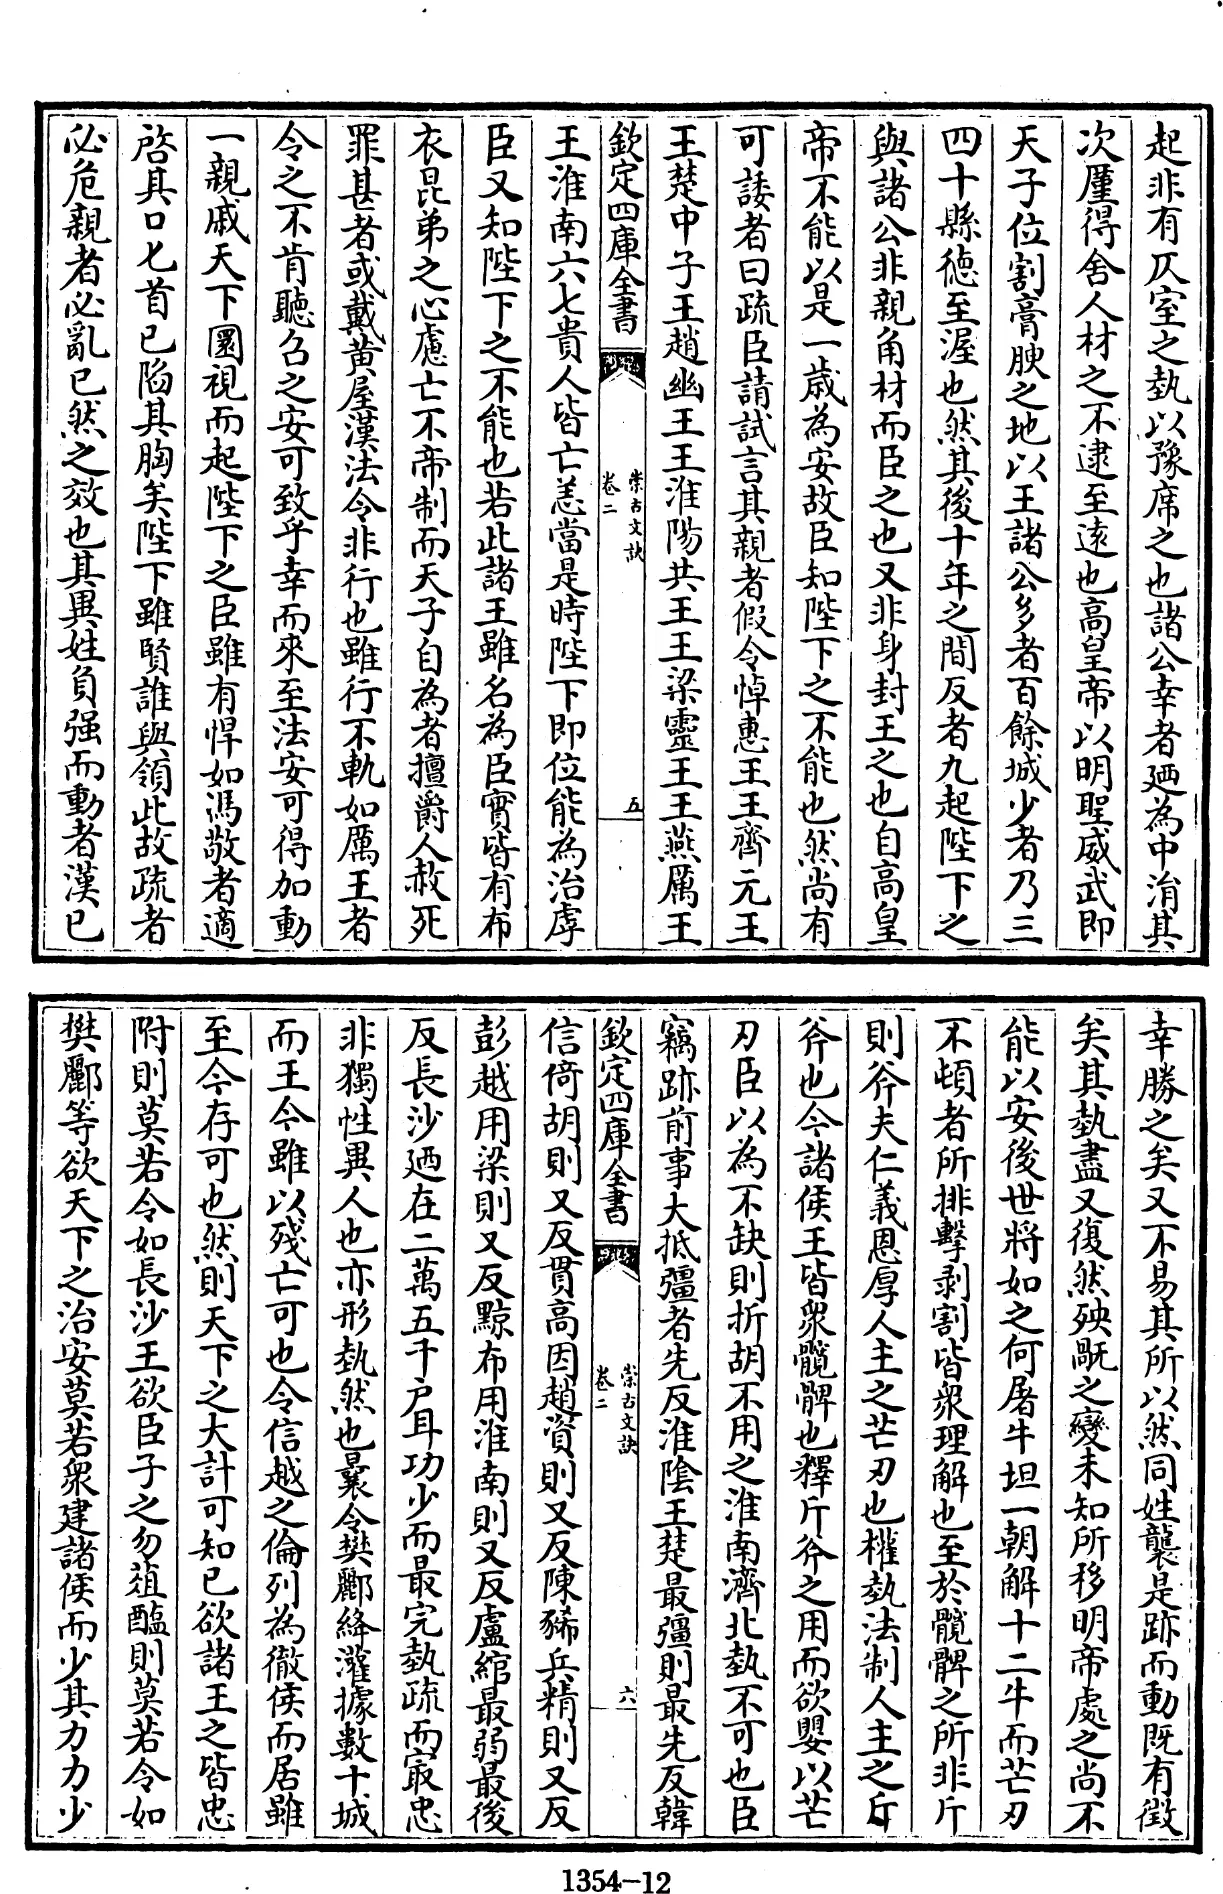 起非有仄室之埶以豫席之也諸公幸者廼為中涓其
次厪得舍人材之不逮至遠也高皇帝以明聖威武即
天子位割膏腴之地以王諸公多者百餘城少者乃三
四十縣徳至渥也然其後十年之間反者九起陛下之
與諸公非親角材而臣之也又非身封王之也自高皇
帝不能以是一嵗為安故臣知陛下之不能也然尚有
可諉者曰疏臣請試言其親者假令悼惠王王齊元王
王楚中子王趙幽王王淮陽共王王梁靈王王燕厲王
欽定四庫全書
崇古文訣
卷二
五
王淮南六七貴人皆亡恙當是時陛下即位能為治虖
臣又知陛下之不能也若此諸王雖名為臣實皆有布
衣昆弟之心慮亡不帝制而天子自為者擅爵人赦死
罪甚者或戴黄屋漢法令非行也雖行不軌如厲王者
令之不肯聽召之安可致乎幸而來至法安可得加動
一親戚天下圜視而起陛下之臣雖有悍如馮敬者適
啓其口匕首已陷其胸矣陛下雖賢誰與領此故疏者
必危親者必亂已然之效也其異姓負强而動者漢已
幸勝之矣又不易其所以然同姓襲是跡而動既有徴
矣其埶盡又復然殃旤之變未知所移明帝處之尚不
能以安後世將如之何屠牛坦一朝解十二牛而芒刃
不頓者所排擊剥割皆衆理解也至於髖髀之所非斤
則斧夫仁義恩厚人主之芒刃也權埶法制人主之斤
斧也今諸侯王皆衆髖髀也釋斤斧之用而欲嬰以芒
刃臣以為不缺則折胡不用之淮南濟北埶不可也臣
竊跡前事大抵彊者先反淮陰王楚最彊則最先反韓
欽定四庫全書
崇古文訣
卷二
六
信倚胡則又反貫高因趙資則又反陳豨兵精則又反
彭越用梁則又反黥布用淮南則又反盧綰最弱最後
反長沙廼在二萬五千户耳功少而最完埶疏而㝡忠
非獨性異人也亦形埶然也曩令樊酈絳灌據數十城
而王今雖以殘亡可也令信越之倫列為徹侯而居雖
至今存可也然則天下之大計可知已欲諸王之皆忠
附則莫若令如長沙王欲臣子之勿葅醢則莫若令如
樊酈等欲天下之治安莫若衆建諸侯而少其力力少
1354-12